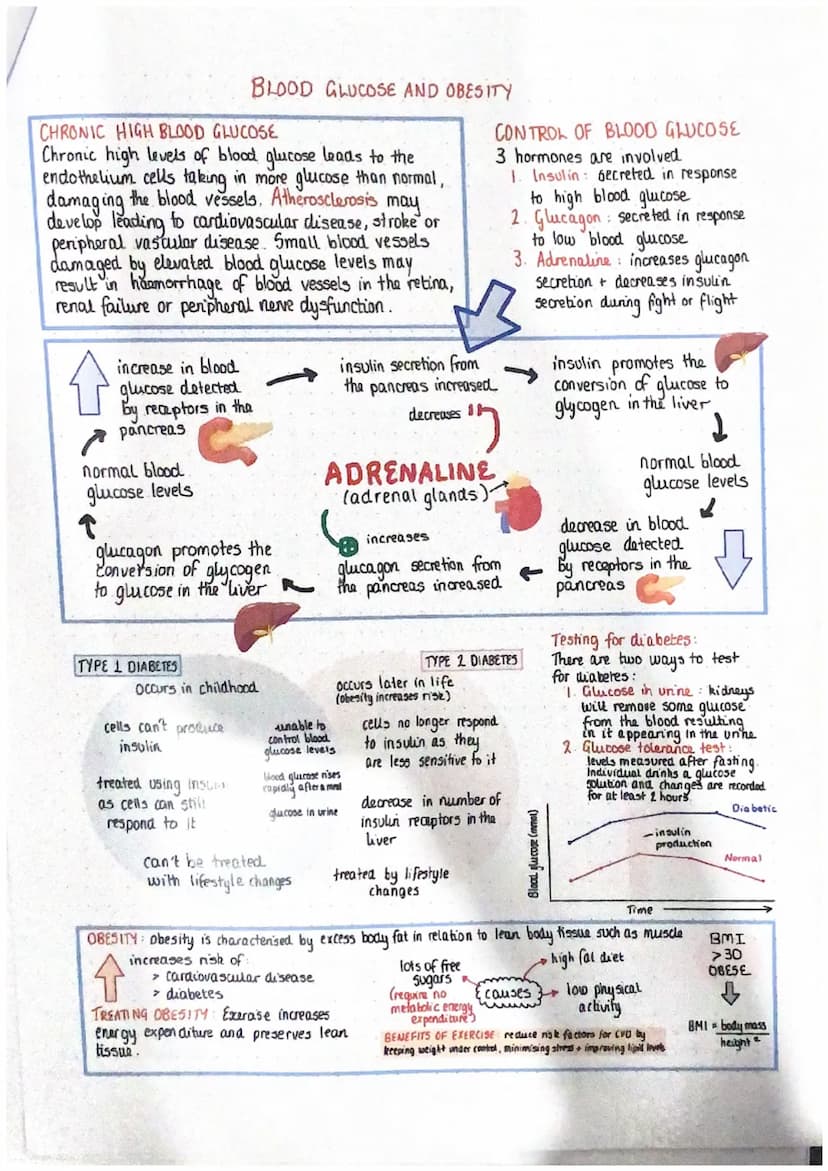 BLOOD GLUCOSE AND OBESITY
CHRONIC HIGH BLOOD GLUCOSE
Chronic high levels of blood glucose leads to the
endothelium cells taking in more glucose than normal,
damaging the blood vessels. Atherosclerosis may
develop leading to cardiovascular disease, stroke or
peripheral vascular disease. Small blood vessels
damaged by elevated blood glucose levels may
result in haemorrhage of blood vessels in the retina,
renal failure or peripheral nerve dysfunction.
CONTROL OF BLOOD GLUCOSE
3 hormones are involved
1. Insulin: secreted in response
to high blood glucose
2. Glucagon: secreted in response
to low blood glucose
3. Adrenaline: increases glucagon
secretion + decreases insulin
secretion during fight or flight
increase in blood
glucose detected
by receptors in the
pancreas
insulin secretion from
the pancreas increased
insulin promotes the
conversion of glucose to
glycogen in the liver
decreases
normal blood
glucose levels
ADRENALINE
(adrenal glands)
normal blood
glucose levels
increases
decrease in blood
glucose detected
by receptors in the
pancreas
glucagon promotes the
conversion of glycogen
to glucose in the liver
glucagon secretion from
the pancreas increased
TYPE 1 DIABETES
occurs in childhood
cells can't produce
insulin
treated using insulin
as cells can still
respond to it
can't be treated
with lifestyle changes
unable to
control blood
glucose levels
blood glucose rises
rapidly after a meal
glucose in urine
TYPE 2 DIABETES
occurs later in life
(obesity increases risk)
cells no longer respond
to insulin as they
are less sensitive to it
decrease in number of
insulin receptors in the
liver
treated by lifestyle
changes
Testing for diabetes:
There are two ways to test
for diabetes:
1. Glucose in urine: kidneys
will remove some glucose
from the blood resulting
in it appearing in the urine
2. Glucose tolerance test:
levels measured after fasting.
Individual drinks a glucose
solution and changes are recorded
for at least 2 hours
Diabetic
insulin
production
Normal
Blood glucose (mmol)
Time
OBESITY: obesity is characterised by excess body fat in relation to lean body tissue such as muscle
increases risk of:
> cardiovascular disease
> diabetes
TREATING OBESITY: Exercise increases
energy expenditure and preserves lean
tissue.
lots of free
sugars
(require no
metabolic energy
expenditure)
causes
high fat diet
low physical
activity
BENEFITS OF EXERCISE: reduce risk factors for CVD by
keeping weight under control, minimising stress + improving lipid levels
BMI
>30
OBESE
BMI = body mass
height²